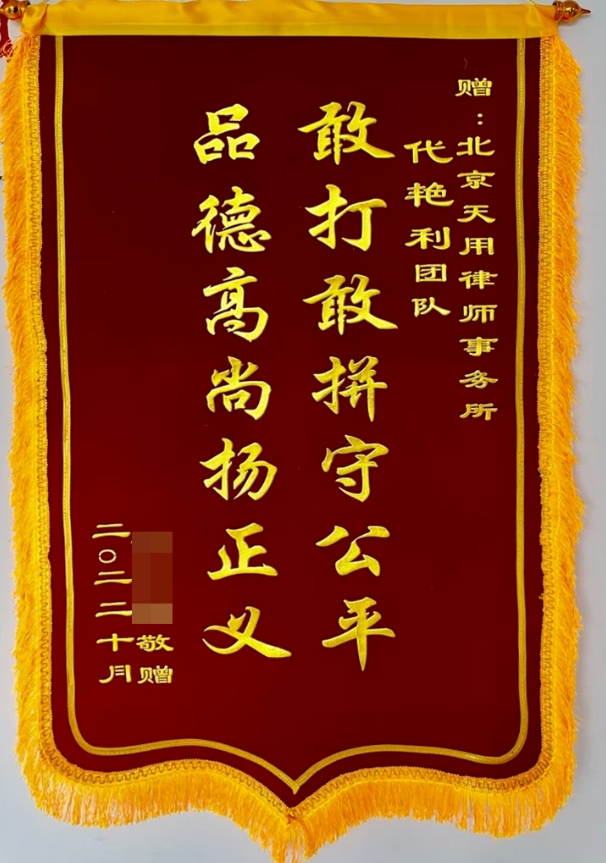 赠：北京天用律师事务所
代艳利团队
敢打敢拼守公平
品德高尚扬正义
敬赠
二〇二二十月